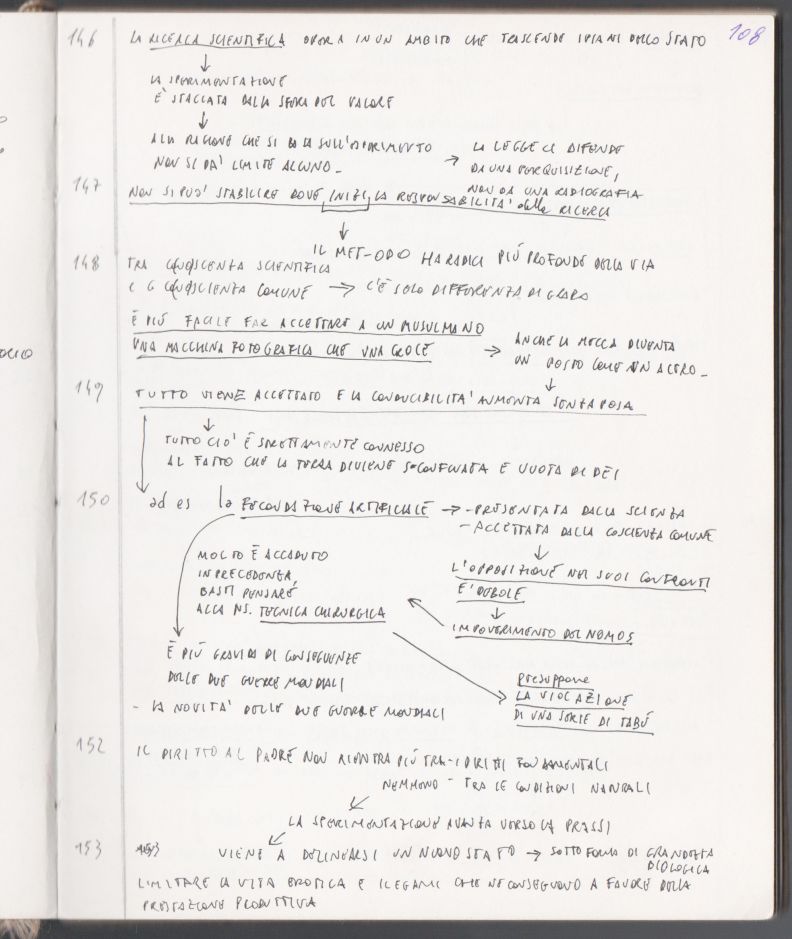 108
146 LA RICERCA SCIENTIFICA OPERA IN UN AMBITO CHE TRASCENDE I PIANI DELLO STATO
↓
LA SPERIMENTAZIONE
È STACCATA DALLA SFERA DEL VALORE
↓
ALLA RAGIONE CHE SI BASA SULL'ESPERIMENTO
NON SI DÀ LIMITE ALCUNO –
→ LA LEGGE CI DIFENDE
DA UNA PERQUISIZIONE,
NON DA UNA RADIOGRAFIA
147 NON SI PUO' STABILIRE DOVE INIZI LA RESPONSABILITA' della RICERCA
↓
IL MET-ODO HA RADICI PIÙ PROFONDE DELLA VIA
148 TRA CONOSCENZA SCIENTIFICA
E COSCIENZA COMUNE → C'È SOLO DIFFERENZA DI GRADO
È PIÙ FACILE FAR ACCETTARE A UN MUSULMANO
UNA MACCHINA FOTOGRAFICA CHE UNA CROCE
→ ANCHE LA MECCA DIVENTA
UN POSTO COME UN ALTRO –
↓
149 TUTTO VIENE ACCETTATO E LA CONDUCIBILITA' AUMENTA SENZA POSA
↓
TUTTO CIO' È STRETTAMENTE CONNESSO
AL FATTO CHE LA TERRA DIVIENE S-CONFINATA E VUOTA DI DEI
150 ad es la FECONDAZIONE ARTIFICIALE → – PRESENTATA DALLA SCIENZA
– ACCETTATA DALLA COSCIENZA COMUNE
↓
L'OPPOSIZIONE NEI SUOI CONFRONTI
E' DEBOLE
↓
IMPOVERIMENTO DEL NOMOS
MOLTO È ACCADUTO
IN PRECEDENZA,
BASTI PENSARE
ALLA NS. TECNICA CHIRURGICA
presuppone
LA VIOLAZIONE
DI UNA SERIE DI TABÙ
È PIÙ GRAVIDA DI CONSEGUENZE
DELLE DUE GUERRE MONDIALI
– LA NOVITA' DELLE DUE GUERRE MONDIALI
152 IL DIRITTO AL PADRE NON RIENTRA PIÙ TRA I DIRITTI FONDAMENTALI
NEMMENO – TRA LE CONDIZIONI NATURALI
LA SPERIMENTAZIONE AVANZA VERSO LA PRASSI
153 VIENE A DELINEARSI UN NUOVO STATO → SOTTO FORMA DI GRANDEZZA
BIOLOGICA
LIMITARE LA VITA EROTICA E I LEGAMI CHE NE CONSEGUONO A FAVORE DELLA
PRESTAZIONE PRODUTTIVA